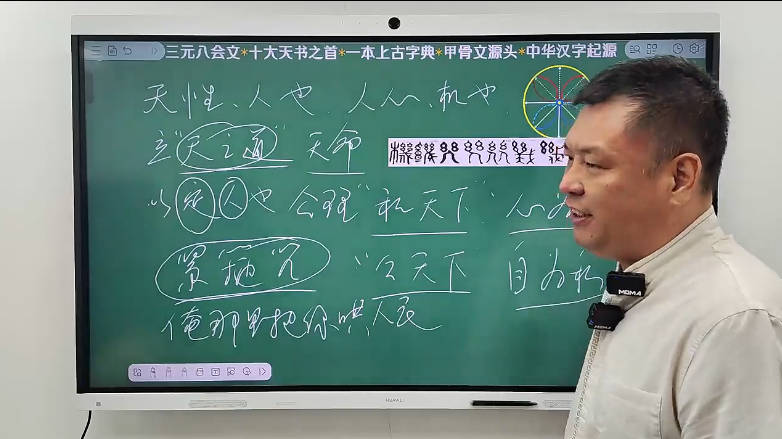 三元八会文*十大天书之首*一本上古字典*甲骨文源头*中华汉字起源
天性、人也 人心、机也
立"天之道" 天命
以定人也 公理"私天下" 心为
紧箍咒 "公天下 自为私
俺那里把你哄,人民
HUAWEI
MOMA
MOMA